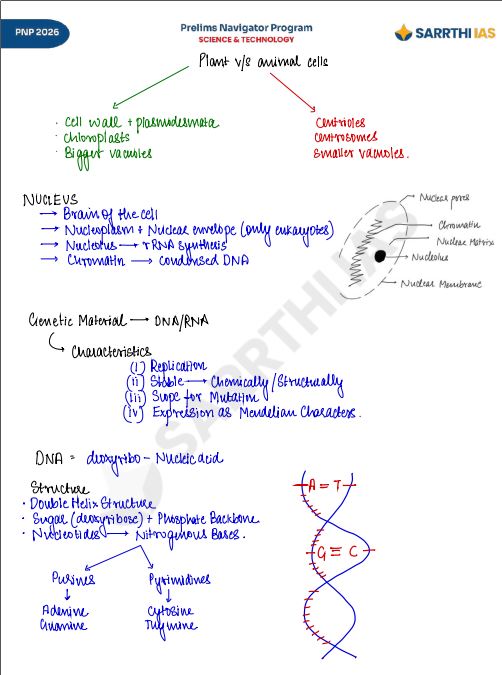 PNP 2026
Prelims Navigator Program
SCIENCE & TECHNOLOGY
SARRTHI IAS
Plant v/s animal cells
· Cell wall + plasmodesmata
· Chloroplasts
· Bigger vacuoles
Centrioles
Centrosomes
Smaller vacuoles.
NUCLEUS
→ Brain of the cell
→ Nucleoplasm + Nuclear envelope (only eukaryotes)
→ Nucleolus → rRNA synthesis
→ Chromatin → condensed DNA
Nuclear pores
Chromatin
Nuclear Matrix
Nucleolus
Nuclear Membrane
Genetic Material → DNA/RNA
Characteristics
(i) Replication
(ii) Stable → Chemically/Structurally
(iii) Scope for Mutation
(iv) Expression as Mendelian Characters.
DNA = deoxyribo - Nucleic acid
Structure
· Double Helix Structure
· Sugar (deoxyribose) + Phosphate Backbone
· Nucleotides → Nitrogenous Bases.
Purines
Pyrimidines
Adenine
Guanine
Cytosine
Thymine
A = T
G ≡ C
SARRTHI IAS